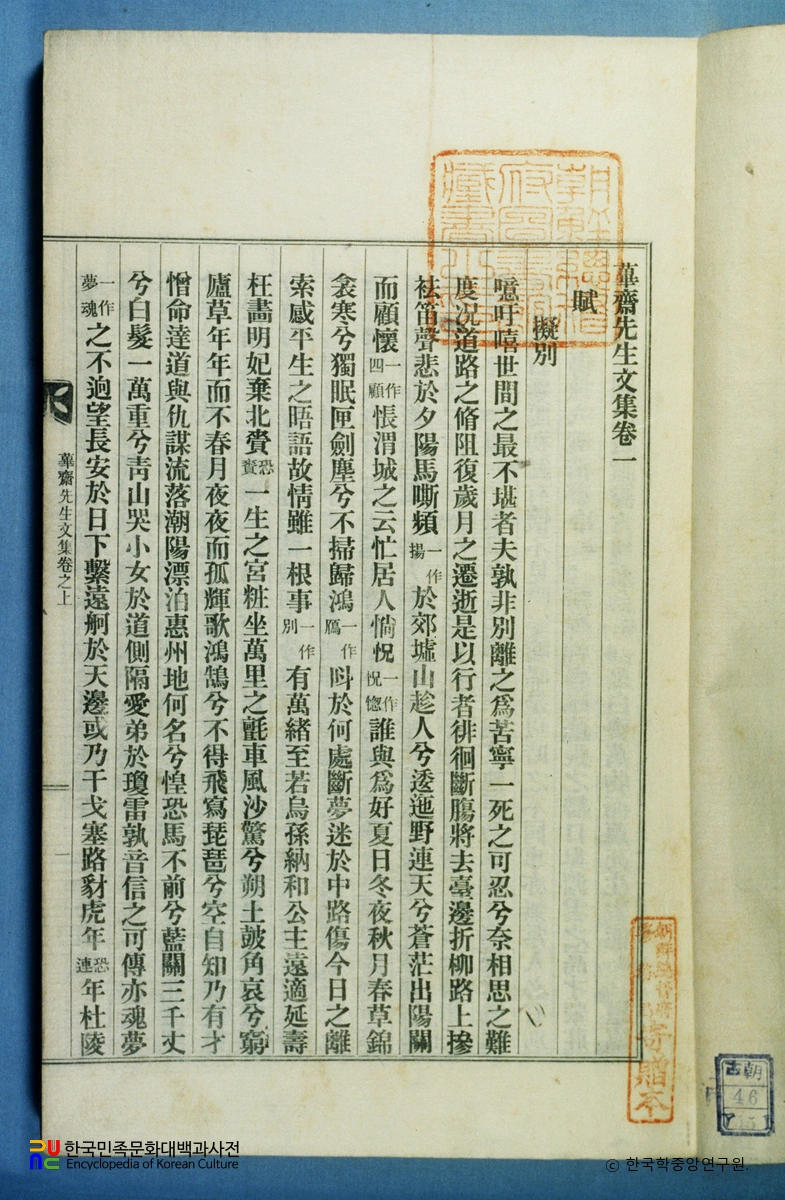 葦齋先生文集卷一
賦
擬別
噫吁嘻世間之最不堪者夫孰非別離之爲苦寧一死之可忍兮奈相思之難
度况道路之脩阻復歲月之遷逝是以行者徘徊斷膓將去臺邊折柳路上摻
袪笛聲悲於夕陽馬嘶頻一作揚於郊墟山趁人兮逶迤野連天兮蒼茫出陽關
而顧懷一作四顧悵渭城之云忙居人惝怳一作怳惚誰與爲好夏日冬夜秋月春草錦
衾寒兮獨眠匣劍塵兮不掃歸鴻一作鴈呌於何處斷夢迷於中路傷今日之離
索感平生之晤語故情雖一根事一作別有萬緖至若烏孫納和公主遠適延壽
枉畵明妃棄北賫恐賚一生之宮粧坐萬里之氈車風沙驚兮朔土皷角哀兮窮
廬草年年而不春月夜夜而孤輝歌鴻鵠兮不得飛寫琵琶兮空自知乃有才
憎命達道與仇謀流落潮陽漂泊惠州地何名兮惶恐馬不前兮藍關三千丈
兮白髮一萬重兮靑山哭小女於道側隔愛弟於瓊雷孰音信之可傳亦魂夢
一作夢魂之不逈望長安於日下繫遠舸於天邊或乃干戈塞路豺虎年恐連年杜陵
葦齋先生文集卷之上
寄贈本
古朝
46
한국민족문화대백과사전
Encyclopedia of Korean Culture
© 한국학중앙연구원.